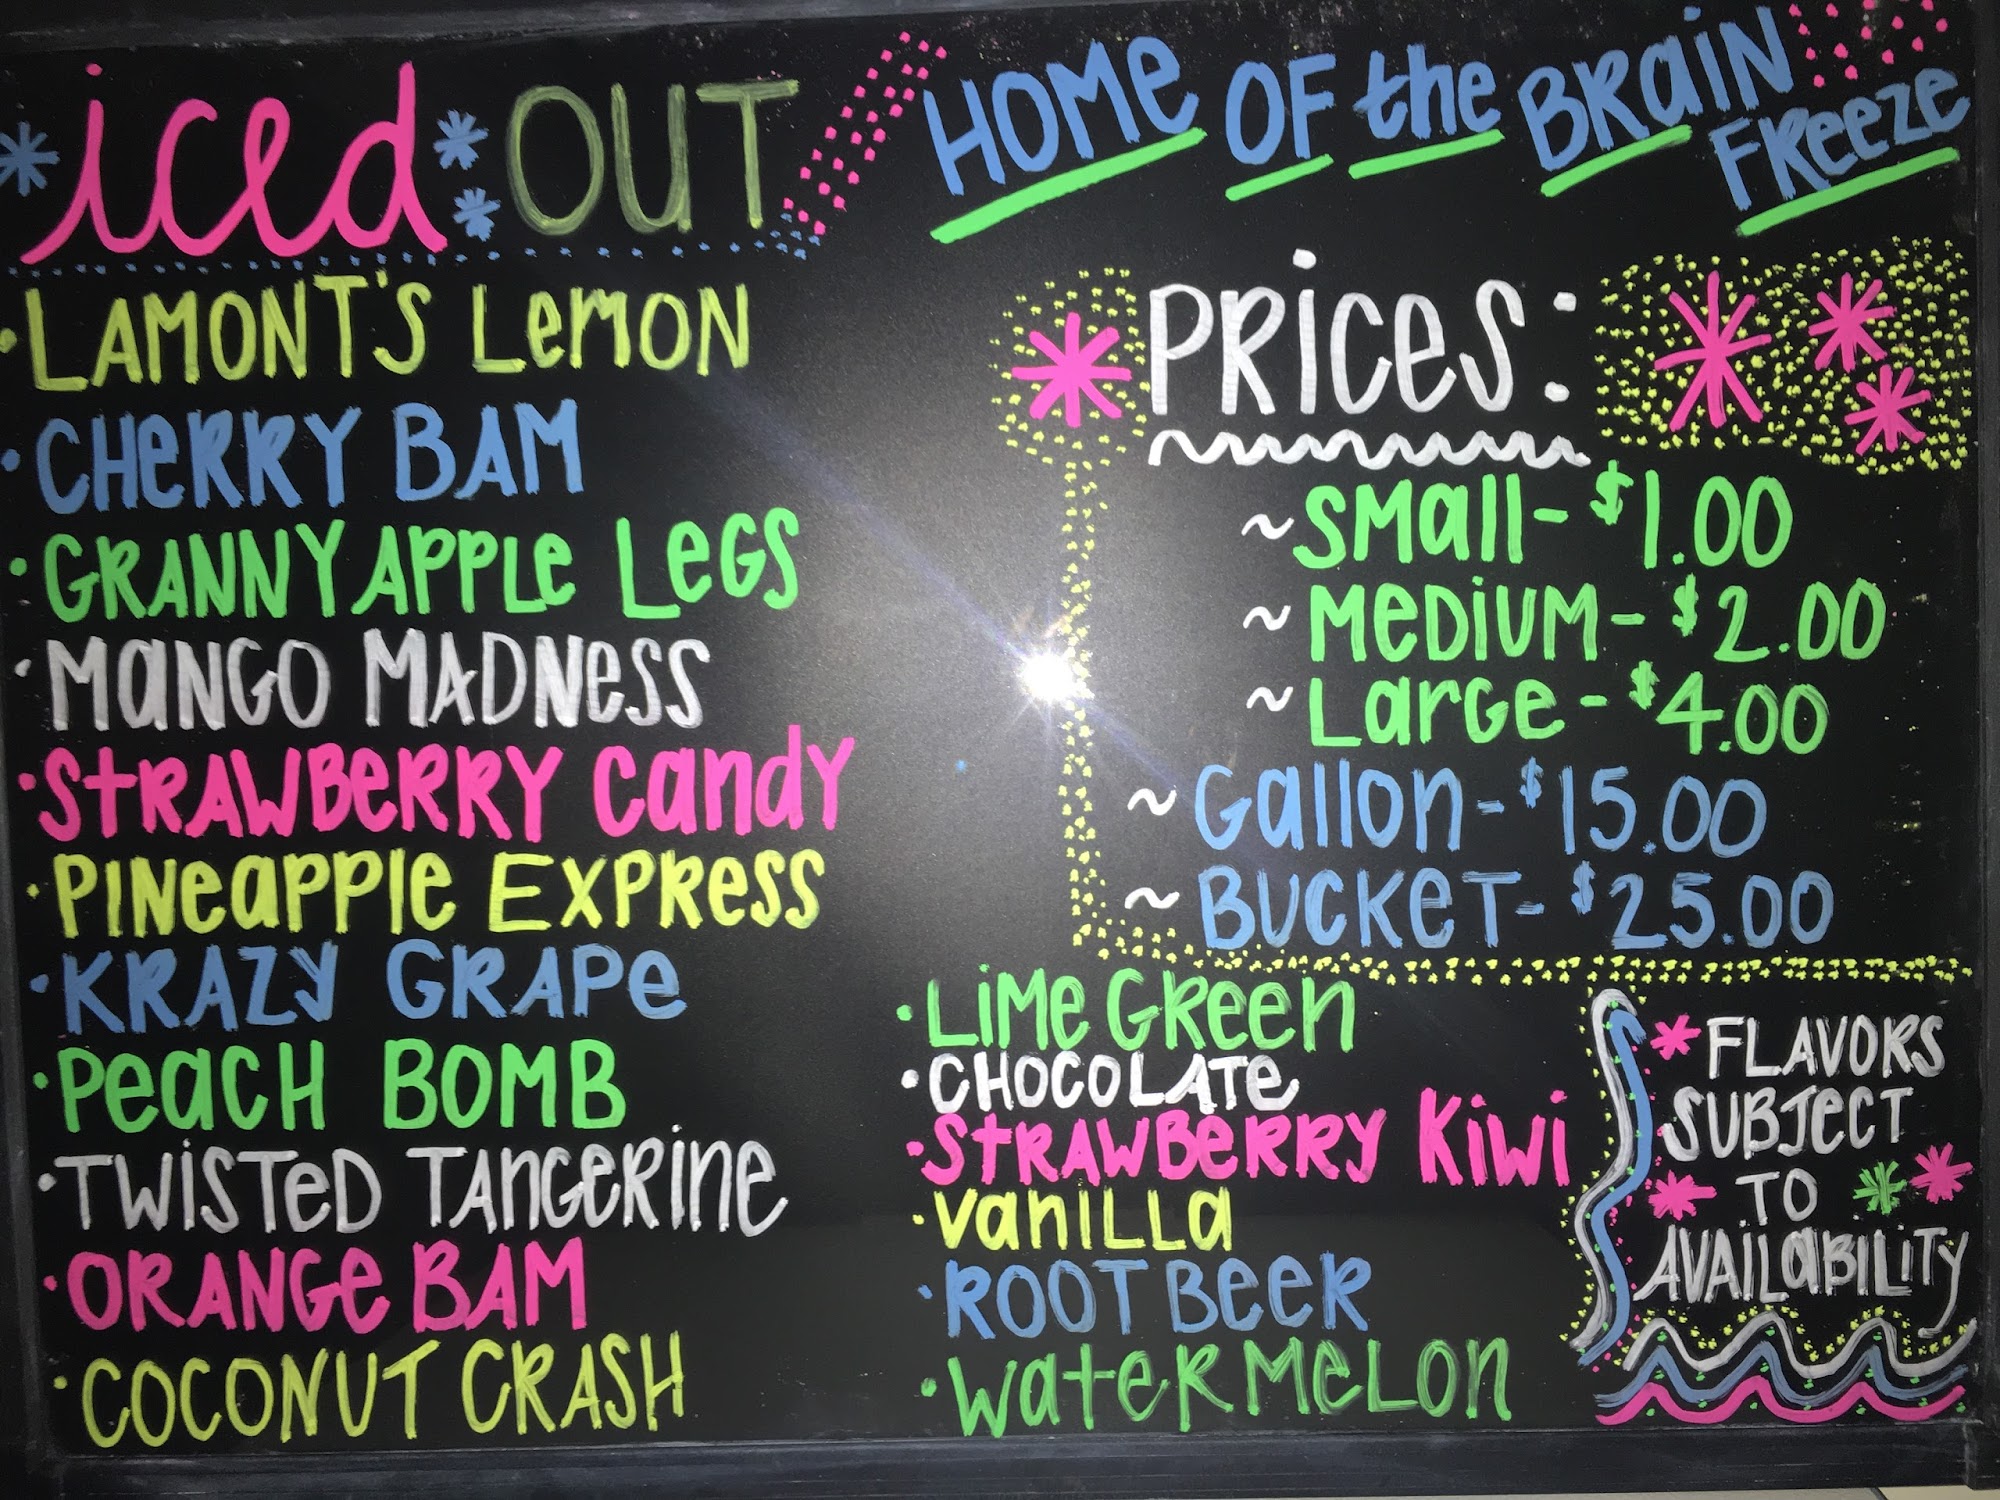 iced OUT
HOMe OF the BRaiN
FReeze
LAMONT'S LemON
CHeRRY BAM
GRANNY APPLe LeGS
MaNGO MADNeSS
StRAWBeRRY candy
PiNeapple EXPRESS
KRAZy GRAPe
PeaCH BOMB
TWiSTeD TANGERine
ORANGe BAM
COCONUT CRASH
PRiceS:
~ SMall - $1.00
~ MeDiUM - $2.00
~ LarGe - $4.00
~ Gallon - $15.00
~ BUCKeT - $25.00
LiMe GReen
CHOCOLATe
StRAWBeRRY Kiwi
VaniLLa
ROOT BeeR
WateRMeLon
* FLAVORS
SUBJeCT
TO
AVAiLaBiLiTY